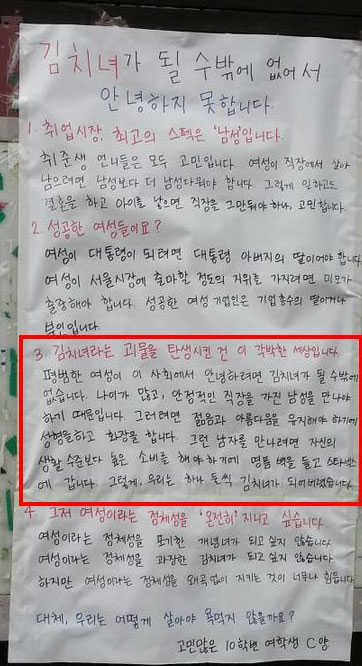 김치녀가 될 수밖에 없어서
안녕하지 못합니다.
1. 취업시장, 최고의 스펙은 '남성'입니다.
취준생 언니들은 모두 고민입니다. 여성이 직장에서 살아
남으려면 남성보다 더 남성다워야 합니다. 그렇게 일하고도
결혼을 하고 아이를 낳으면 직장을 그만둬야 하나, 고민합니다.
2. 성공한 여성들이요?
여성이 대통령이 되려면 대통령 아버지의 딸이어야 합니다
여성이 서울시장에 출마할 정도의 지위를 가지려면 미모가
출중해야 합니다. 성공한 여성 기업인은 기업총수의 딸이거나
부인입니다.
3. 김치녀라는 괴물을 탄생시킨 건 이 각박한 세상입니다
평범한 여성이 이 사회에서 안녕하려면 김치녀가 될 수밖에
없습니다. 나이가 많고, 안정적인 직장을 가진 남성을 만나야
하기 때문입니다. 그러려면 젊음과 아름다움을 유지해야 하기에
성형을하고 화장을 합니다. 그런 남자를 만나려면 자신의
생활 수준보다 높은 소비를 해야 하기에 명품 백을 들고 스타벅스
에 갑니다. 그렇게, 우리는 하나 둘씩 김치녀가 되어버렸습니다.
4. 그저 여성이라는 정체성을 '온전히' 지니고 싶습니다
여성이라는 정체성을 포기한 개념녀가 되고 싶지 않습니다
여성이라는 정체성을 과장한 김치녀가 되고 싶지 않습니다
하지만 여성이라는 정체성을 왜곡없이 지키는 것이 너무나 힘듭니다
대체, 우리는 어떻게 살아야 욕먹지 않을까요?
고민많은 10학번 여학생 C양